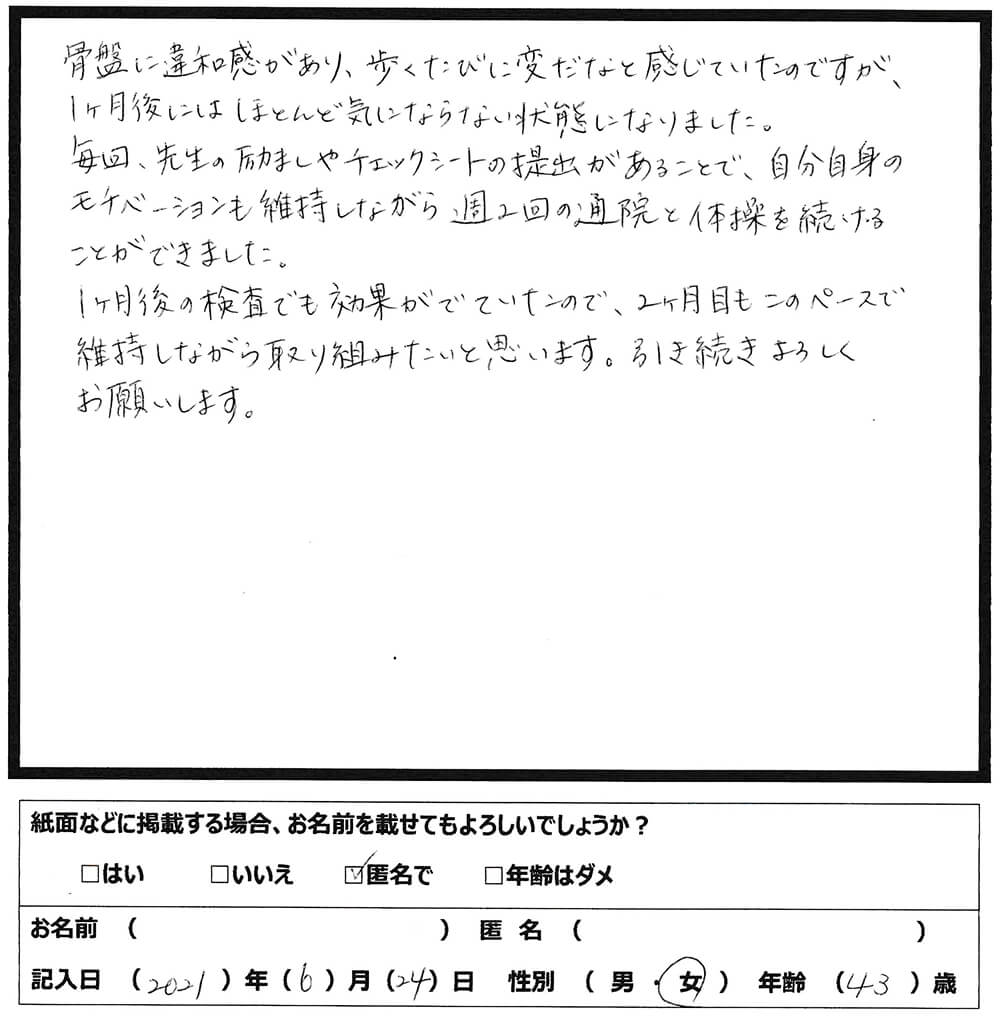 骨盤に違和感があり、歩くたびに変だなと感じていたのですが、
1ヶ月後にはほとんど気にならない状態になりました。
毎回、先生の励ましやチェックシートの提出があることで、自分自身の
モチベーションも維持しながら週2回の通院と体操を続ける
ことができました。
1ヶ月後の検査でも効果がでていたので、2ヶ月目もこのペースで
維持しながら取り組みたいと思います。引き続きよろしく
お願いします。
紙面などに掲載する場合、お名前を載せてもよろしいでしょうか？
□はい □いいえ ☑匿名で □年齢はダメ
お名前 （ ） 匿名 （ ）
記入日 （2021）年（6）月（24）日 性別 （ 男 ・ 女 ） 年齢 （43）歳